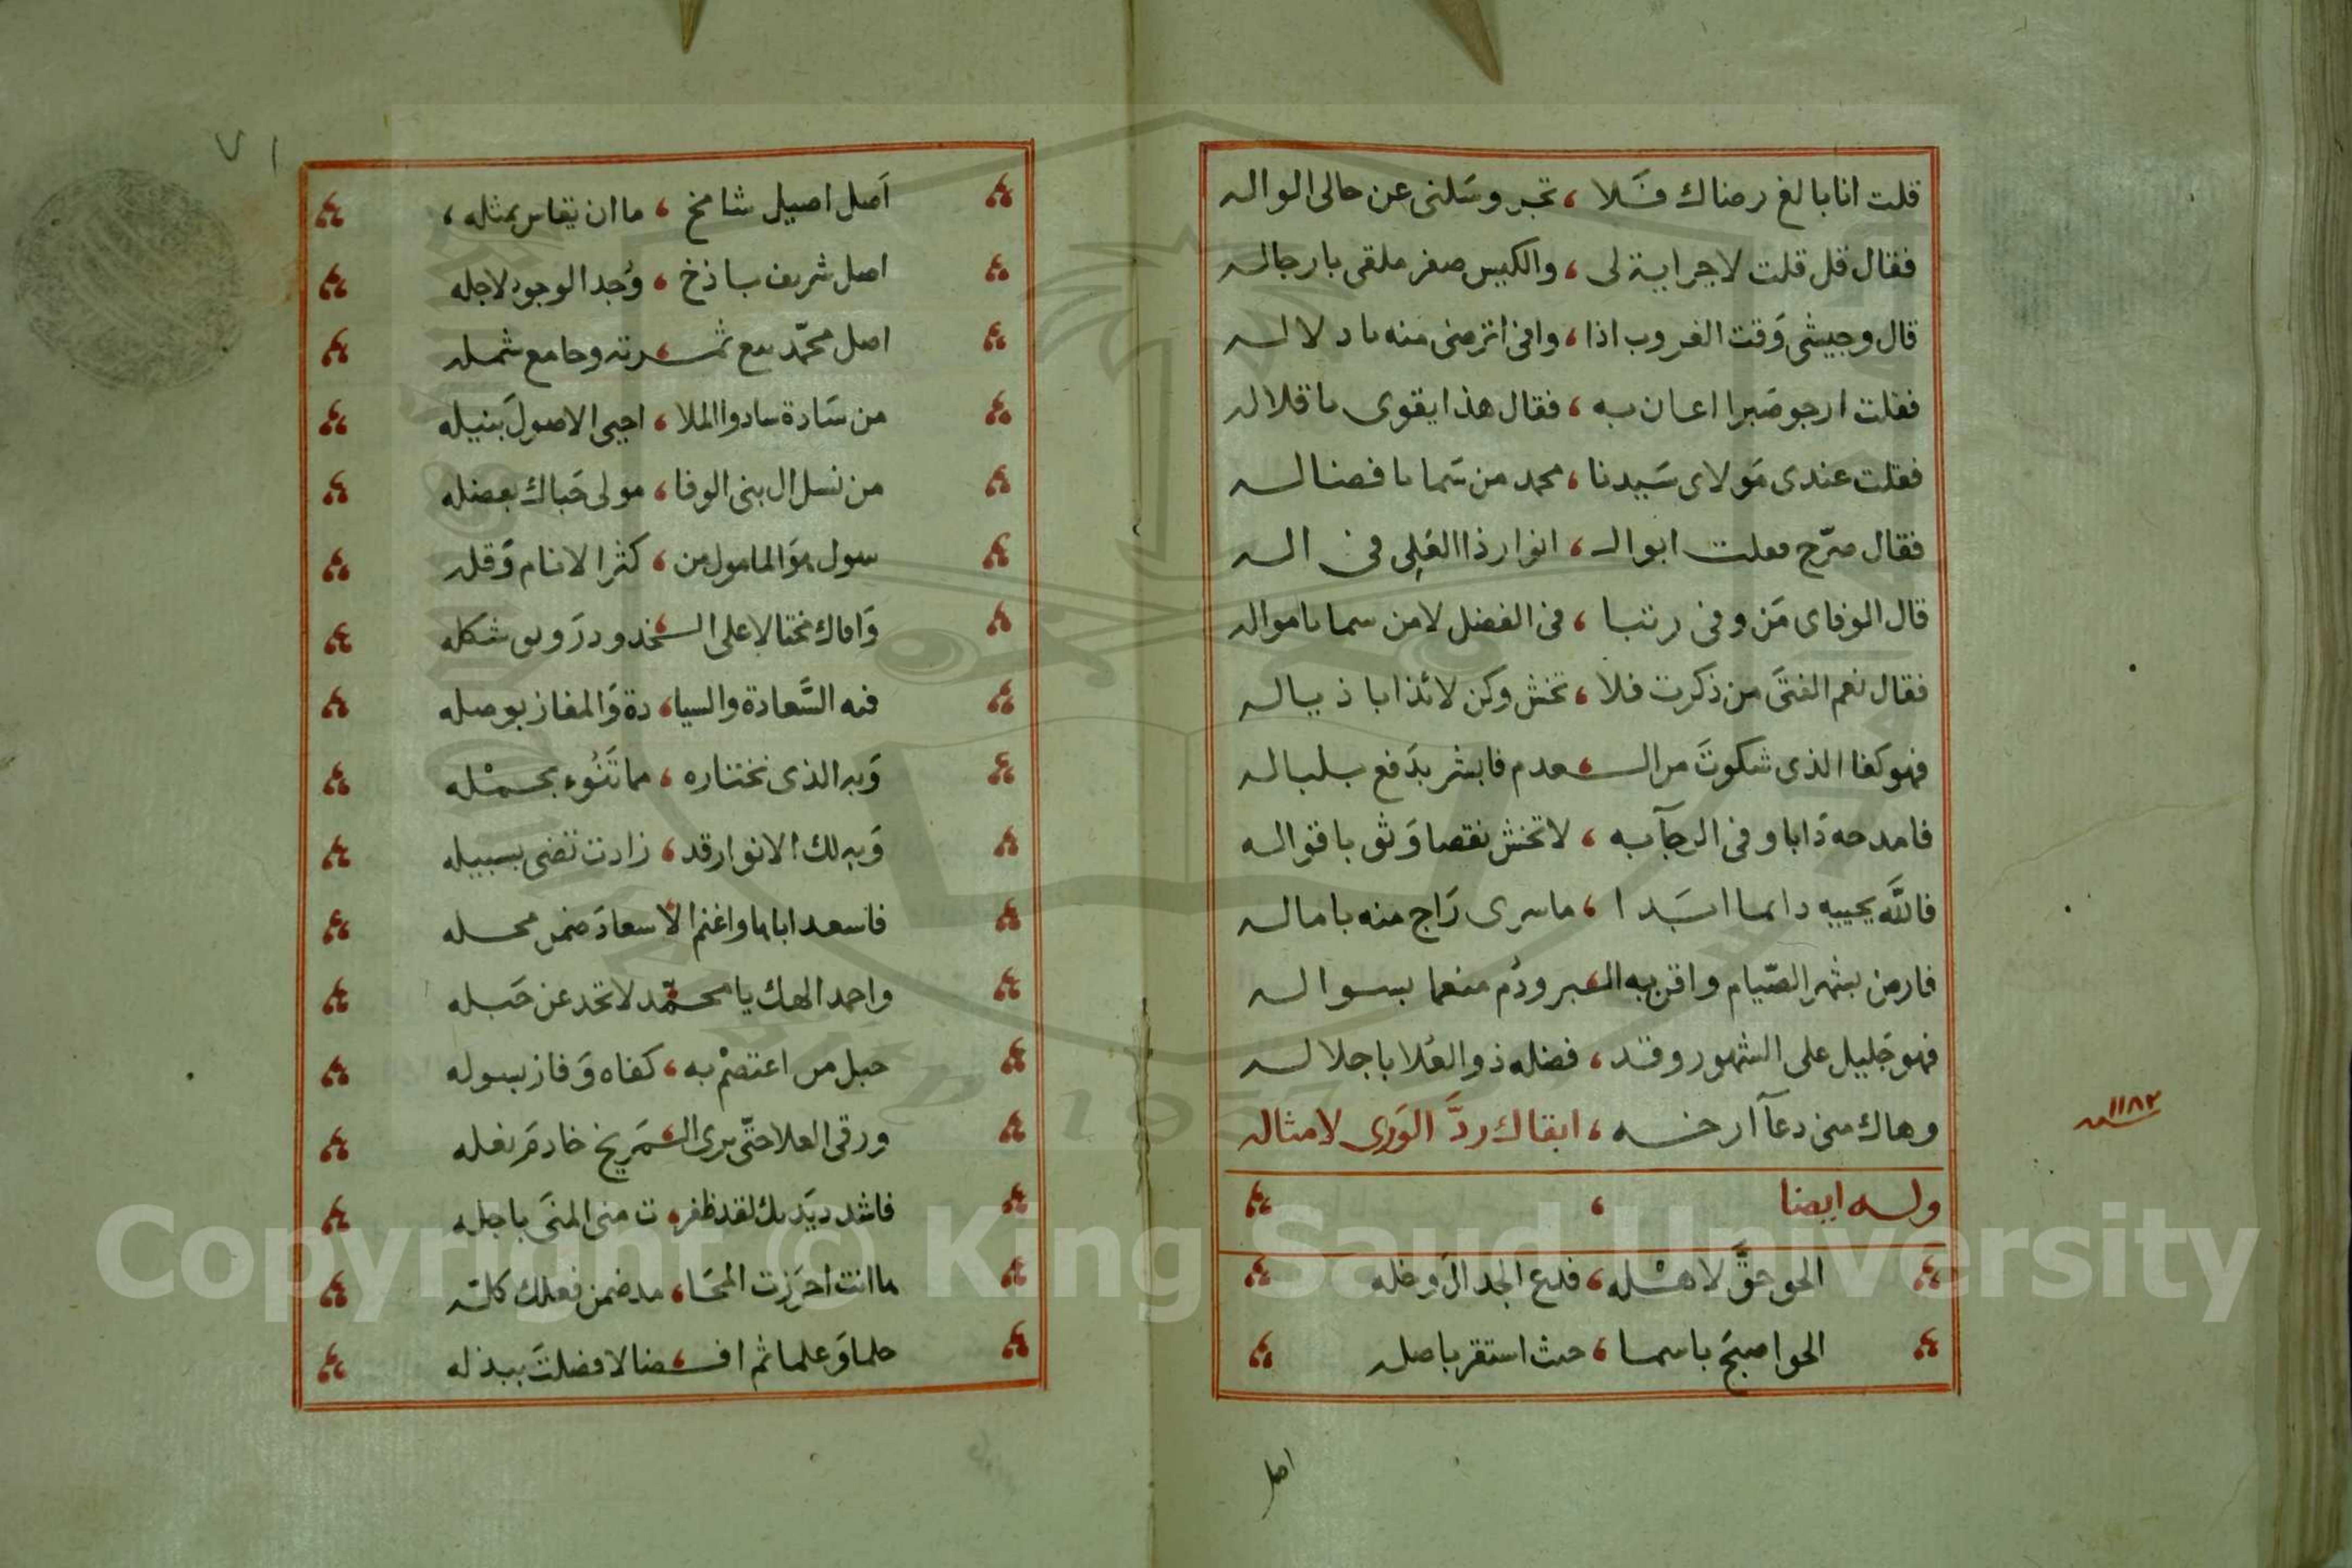 قلت انا بالغ رضاك فَلا ، تجر وسَلنى عن حالى الواله
فقال قل قلت لا جراية لى ، والكيس صفر ملقى بارجاله
قال وجيشى وَقت الغروب اذا ، وافى اترضى منه با دلاله
فقلت ارجو صَبرا اعان به ، فقال هذا يقوى باقلاله
فقلت عندى مَولاى سَيدنا ، محمد من سَما بافضاله
فقال صرّح فقلت ابوال ، انوار ذا العُلى فى اله
قال الوفاى مَن وفى رتبا ، فى الفضل لا من سما باموالہ
فقال نعم الفتى من ذكرت فلا ، تخش وكن لائذا باذياله
فهو كفا الذى شكوتَ من الـ ، ـعدم فابشر بدَفع بلباله
فامدحه دَابا وفى الرجآ به ، لا تخش نقصا وَثق باقواله
فاللَّه يحييه دايما ابَدا ، ما سرى رَاج منه بامالـه
فارض بشهر الصّيام واقر به الـ ، ـبر ودُم منعما بسواله
فهو جَليل على الشهور وقد ، فضله ذو العُلا باجلاله
وهاك منى دعآ ارخـه ، ابقاك ردَّ الوَرى لامثاله
١١٨٢ سنه
وله ايضا ،
الحق حقّ لاهْله ، فدع الجدالَ وخله
الحق اصبَح باسما ، حيث استقر باصله
اصل
٧١
اَصل اصيل شامخ ، ما ان يقاس بمثله ،
اصل شريف باذخ ، وُجد الوجود لاجله
اصل محمّد مع ثمـ ، ـرته وجامع شمله
من سَادة سادوا الملا ، احيى الاصولَ بنيله
من نسل ال بنى الوفا ، مولى حَباك بفضله
سول هوَ المامول من ، كثر الانام وَقله
وَافاك مختالا على الـ ، ـخدود درَ وبى شكله
فيه السَّعادة والسيا ، دة وَالمفاز بوصله
وَبه الذى تختاره ، مما تَنُوء بحمْله
وَبه لك الانوار قد ، زادت تضى بسبيله
فاسعد ابا با واغنم الا ، سعادَ ضمن محله
واحمد الهك يا محمّد لا تحد عن حَبله
حبل من اعتصَمْ به ، كفاه وَفاز بسوله
ورقى العلا حتّى يرى الـ ، ـمَريخ خادمَ نعله
فاشدد يَديك لقد ظفر ، ت منى المنَى باجله
ما انت احرَزت المحَا ، مد ضمن فعلك كله
حلما وَعلما ثم افـ ، ـضالا فضلتَ ببذله
Copyright © King Saud University